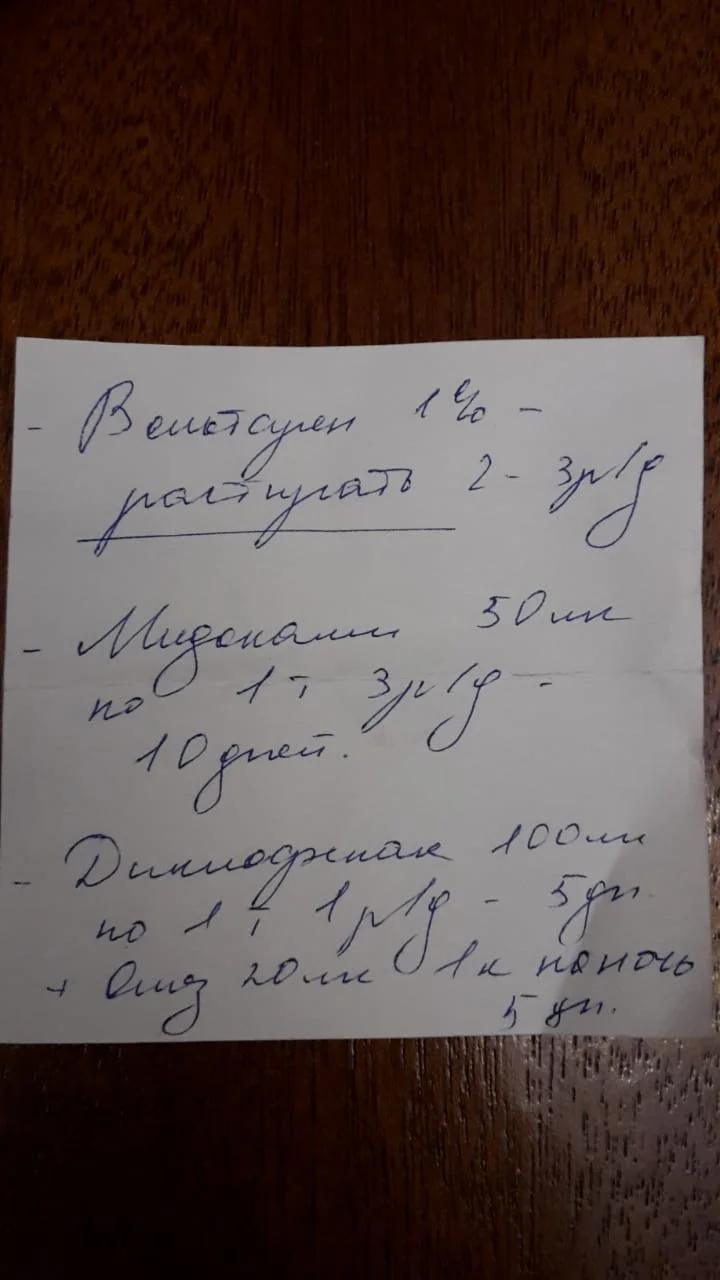 - Вольтарен 1% -
растирать 2 - 3р/д
- Мидокалм 50мг
по 1 т 3р/д -
10 дней.
- Диклофенак 100мг
по 1 т 1р/д - 5дн.
+ Омез 20мг 1к на ночь
5 дн.